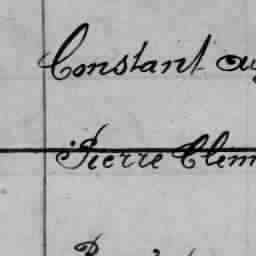 Constant au
Pierre Clem